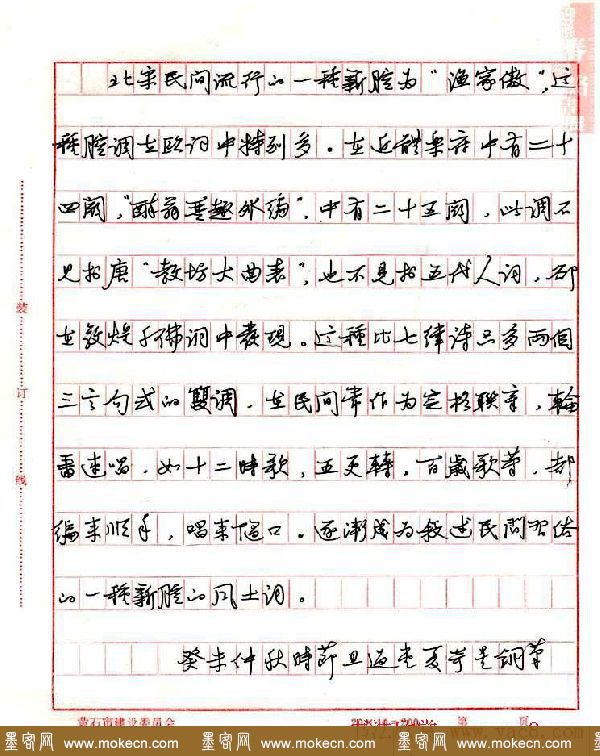 北宋民间流行的一種新腔为“渔家傲”,这
種腔调在欧词中特别多。在近體乐府中有二十
四阕,“醉翁琴趣外编”中有二十五阕,此调不
见於唐“教坊大曲表”,也不见於五代人词,却
在敦煌千佛洞中發現。这種比七律诗只多两個
三言句式的雙调,在民间常作为定格联章,輪
番迭唱,如十二時歌,五更轉,百歲歌等,都
编来順手,唱来随口。逐渐成为叙述民間习俗
的一種新腔的风土词。
癸未仲秋時節 夏 鋼筆
黄石市建设委员会
第 页
装
订
线
墨客网 www.mokecn.com 墨客网 www.mokecn.com 墨客网 www.mokecn.com